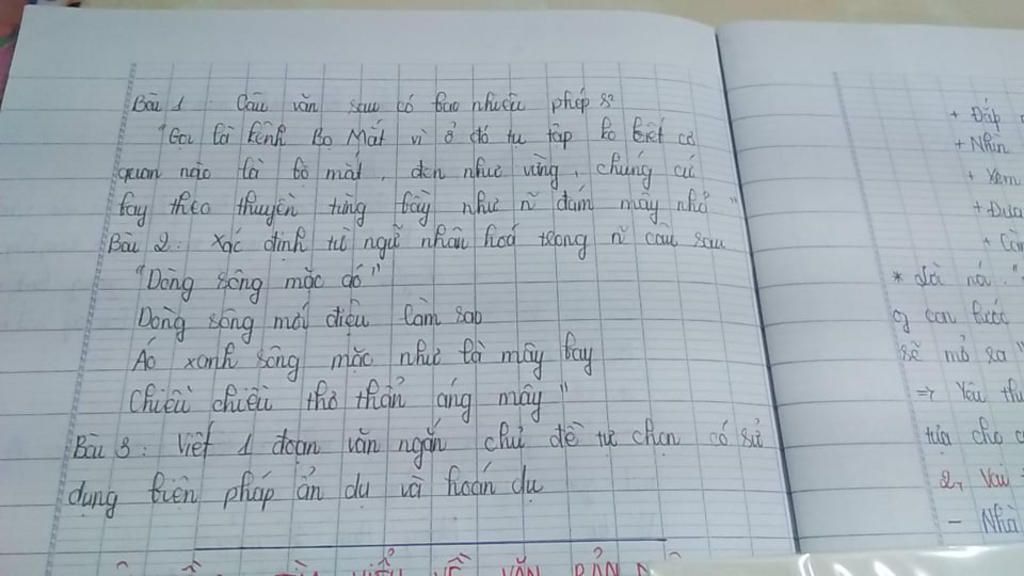 Bài 1: Câu văn sau có bao nhiêu phép s²
"Gọi là kênh Bọ Mắt vì ở đó tụ tập ko biết cơ
quan nào là bò mắt, đen như vừng, chúng cứ
bay theo thuyền từng bầy như n~ đám mây nhỏ"
Bài 2: Xác định từ ngữ nhân hoá trong n~ câu sau
"Dòng sông mặc áo"
Dòng sông mới điệu làm sao
Áo xanh sông mặc như là mây bay
Chiều chiều thơ thẩn áng mây"
Bài 3: Viết 1 đoạn văn ngắn chủ đề tự chọn có sử
dụng biện pháp ẩn dụ và hoán dụ
VĂN BẢN
+ Đắp
+ Nhìn
+ Xem
+ Đưa
* Là nó
sẽ mở ra "
=> Yêu thu
tựa cho
2, Vai
- Nhà